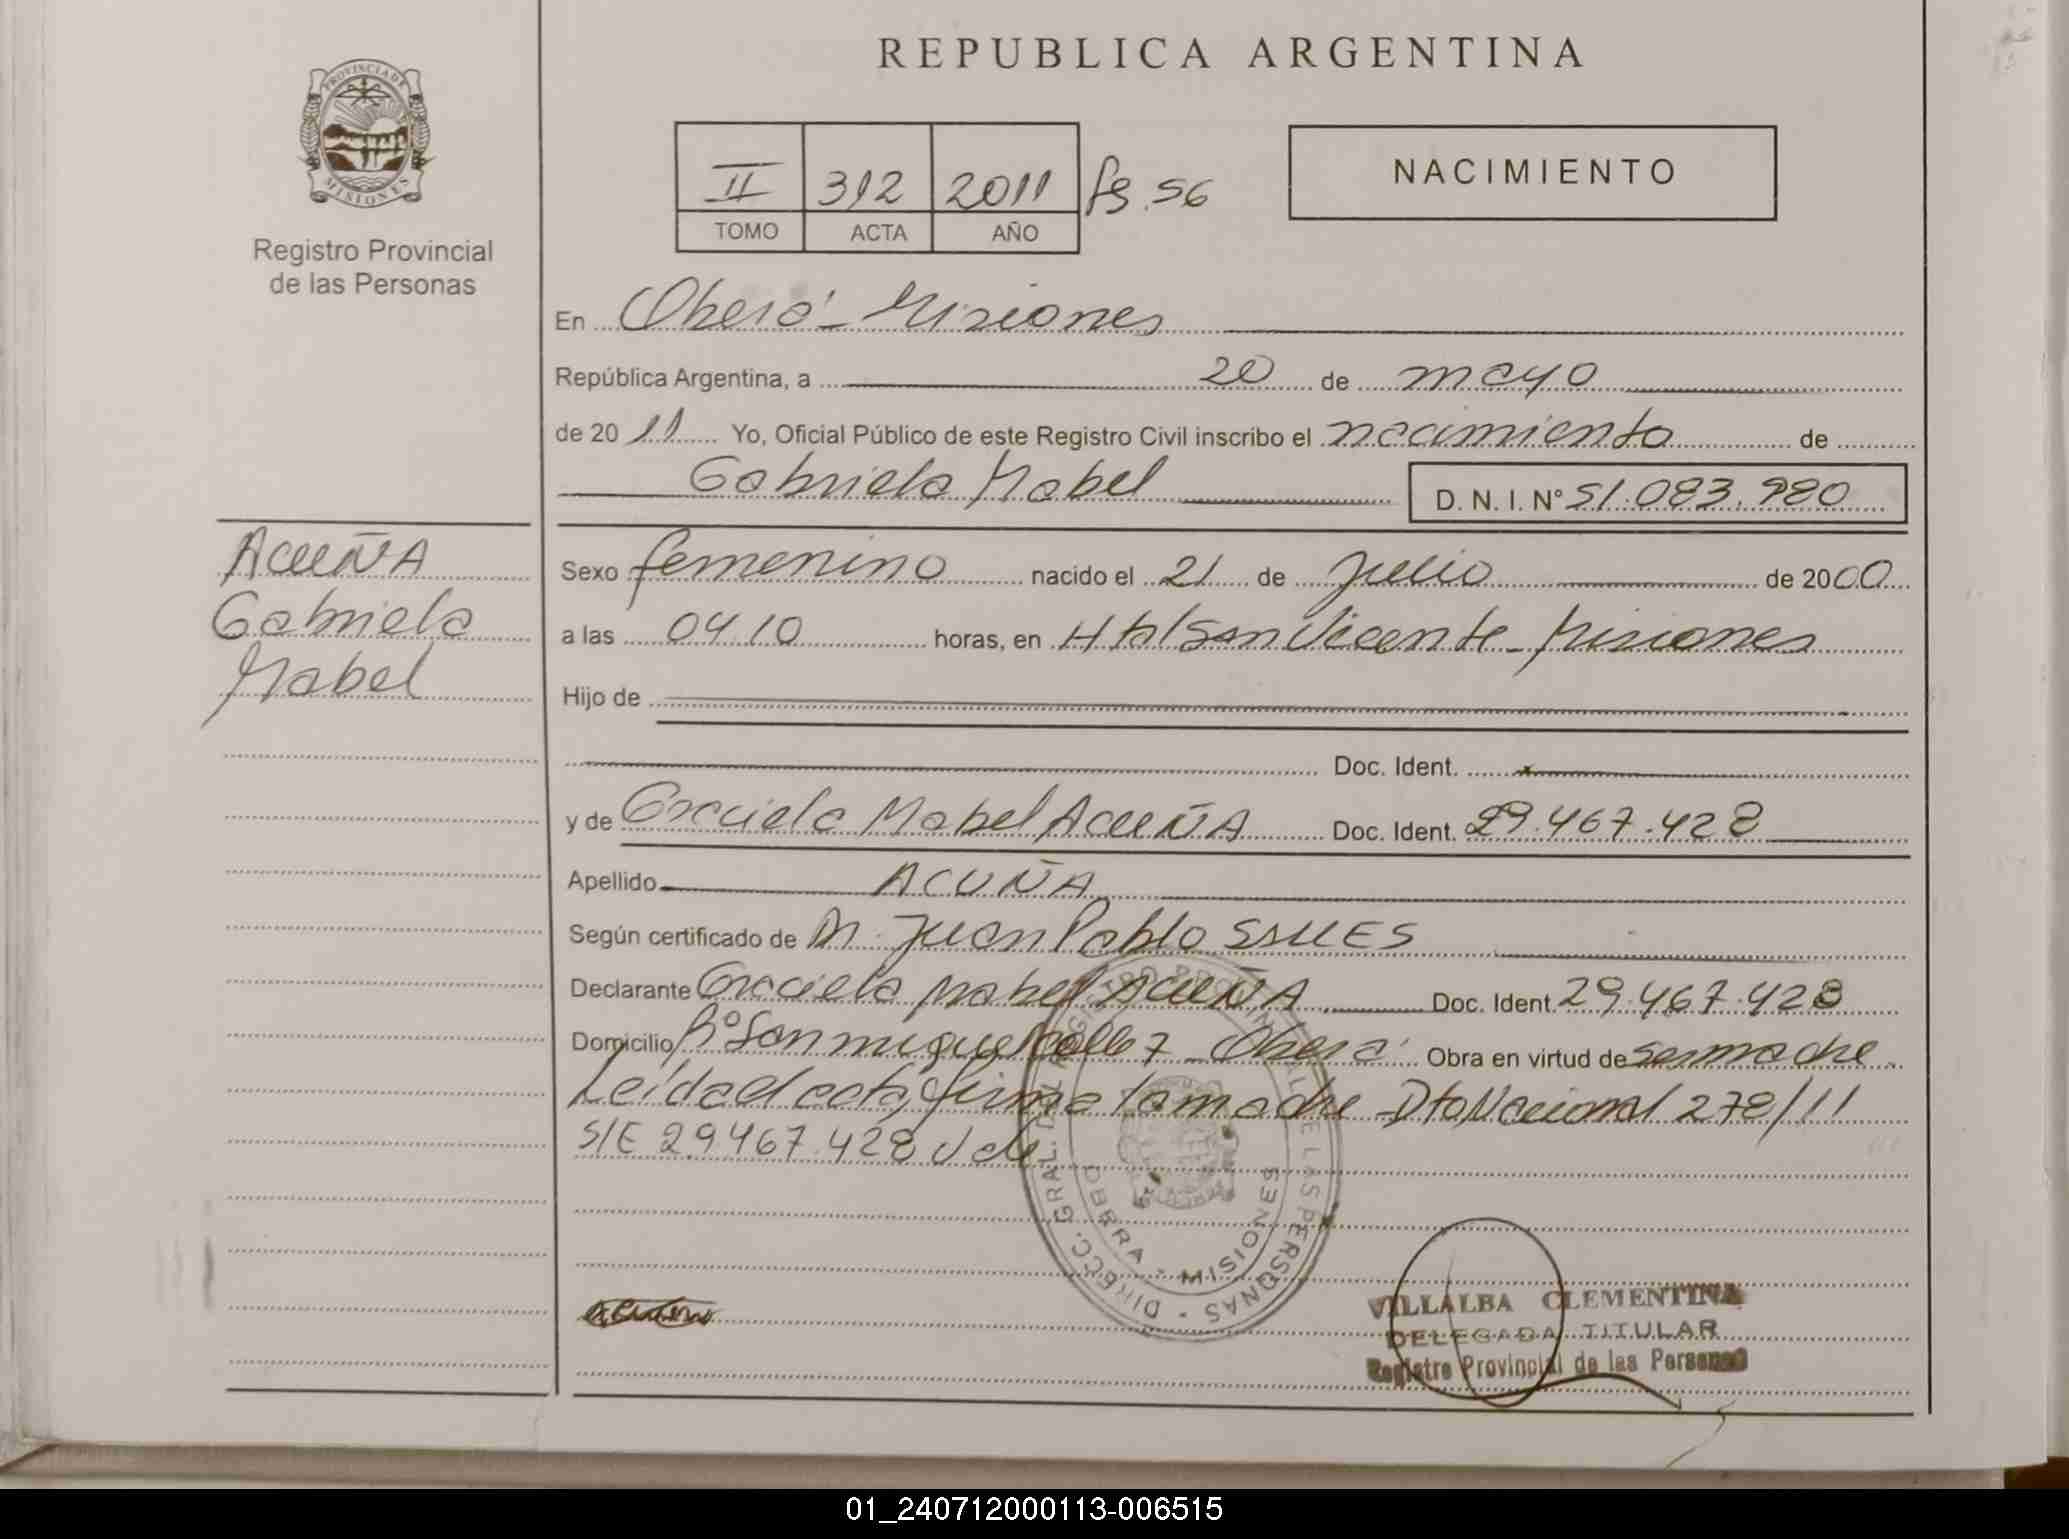 PROVINCIA DE
MISIONES
Registro Provincial
de las Personas
REPUBLICA ARGENTINA
II 312 2011 fs. 56
TOMO ACTA AÑO
NACIMIENTO
En Oberá - Misiones
República Argentina, a 20 de mayo
de 20 11 Yo, Oficial Público de este Registro Civil inscribo el nacimiento de
Gabriela Mabel D. N. I. N° 51.083.980
ACUÑA
Gabriela
Mabel
Sexo femenino nacido el 21 de Julio de 2000
a las 04.10 horas, en Htal San Vicente - Misiones
Hijo de
Doc. Ident.
y de Graciela Mabel ACUÑA Doc. Ident. 29.467.428
Apellido ACUÑA
Según certificado de Dr. Juan Pablo
Declarante Graciela Mabel ACUÑA Doc. Ident. 29.467.428
Domicilio Bº San miguel Oberá Obra en virtud de ser madre
Leída el acta, firma la madre - Dto Nacional 278/11
S/E 29.467.428 Vale
DIRECC. GRAL. DEL REGISTRO PROVINCIAL DE LAS PERSONAS
OBERA - MISIONES
VILLALBA CLEMENTINA
DELEGADA TITULAR
Registro Provincial de las Personas
01_240712000113-006515